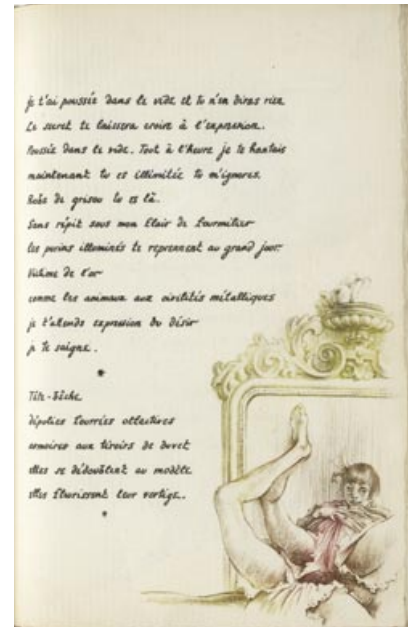 je t'ai poussée dans le vide et tu n'en diras rien
Le secret te laissera croire à l'expression.
Poussée dans le vide. Tout à l'heure je te hantais
maintenant tu es illimitée tu m'ignores.
Robe de grisou tu es là.
Sans répit sous mon flair de fourmilier
les purins illuminés te reprennent au grand jour
Victime de l'or
comme les animaux aux virilités métalliques
je t'attends expression du désir
je te saigne.
*
Tête-bêche
députées fourrées
armoires aux tiroirs de duvet
elles se dédoublent au modèle
elles fleurissent leur vertige.
*